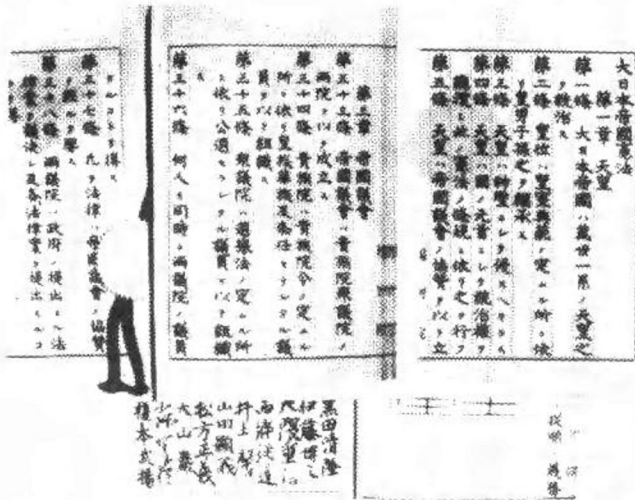 大日本帝國憲法
第一章 天皇
第一條 大日本帝國ハ萬世一系ノ天皇之
ヲ統治ス
第二條 皇位ハ皇室典範ノ定ムル所ニ依
リ皇男子孫之ヲ繼承ス
第三條 天皇ハ神聖ニシテ侵スヘカラス
第四條 天皇ハ國ノ元首ニシテ統治權ヲ
總攬シ此ノ憲法ノ條規ニ依リ之ヲ行フ
第五條 天皇ハ帝國議會ノ協贊ヲ以テ立
第三章 帝國議會
第三十三條 帝國議會ハ貴族院衆議院ノ
兩院ヲ以テ成立ス
第三十四條 貴族院ハ貴族院令ノ定ムル
所ニ依リ皇族華族及勅任セラレタル議
員ヲ以テ組織ス
第三十五條 衆議院ハ選擧法ノ定ムル所
ニ依リ公選セラレタル議員ヲ以テ組織
ス
第三十六條 何人モ同時ニ兩議院ノ議員
タルコトヲ得ス
第三十七條 凡テ法律ハ帝國議會ノ協贊
ヲ經ルヲ要ス
第三十八條 兩議院ハ政府ノ提出スル法
律案ヲ議決シ及各法律案ヲ提出スルコ
黑田清隆
伊藤博文
大隈重信
西鄕從道
井上馨
山田顯義
松方正義
大山巖
榎本武揚